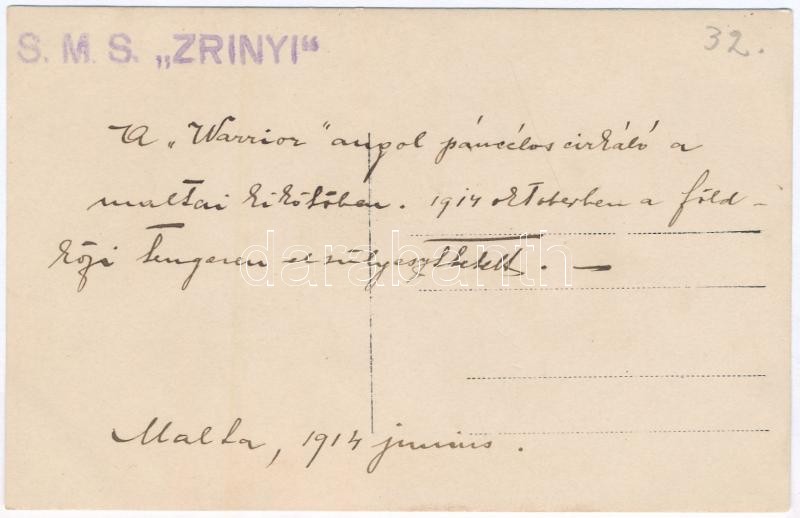 S. M. S. „ZRINYI“
32.
A „Warrior” angol páncélos cirkáló a
maltai kikötőben. 1914 oktoberben a föld-
közi tengeren elsülyesztetett. —
darabanth
Malta, 1914 junius.